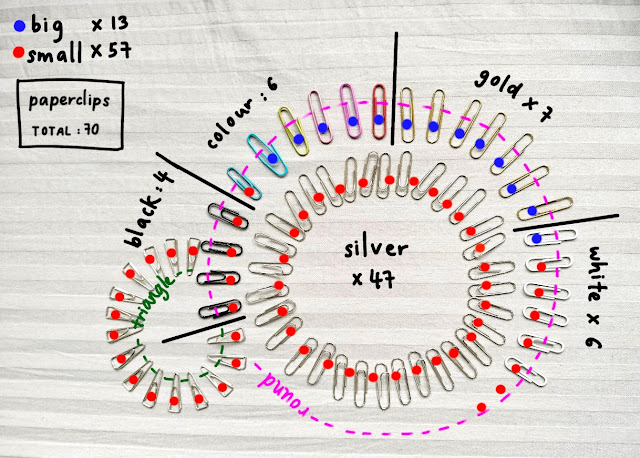 big x 13
small x 57
paperclips
TOTAL : 70
colour : 6
gold x 7
black : 4
silver
x 47
triangle
white x 6
round